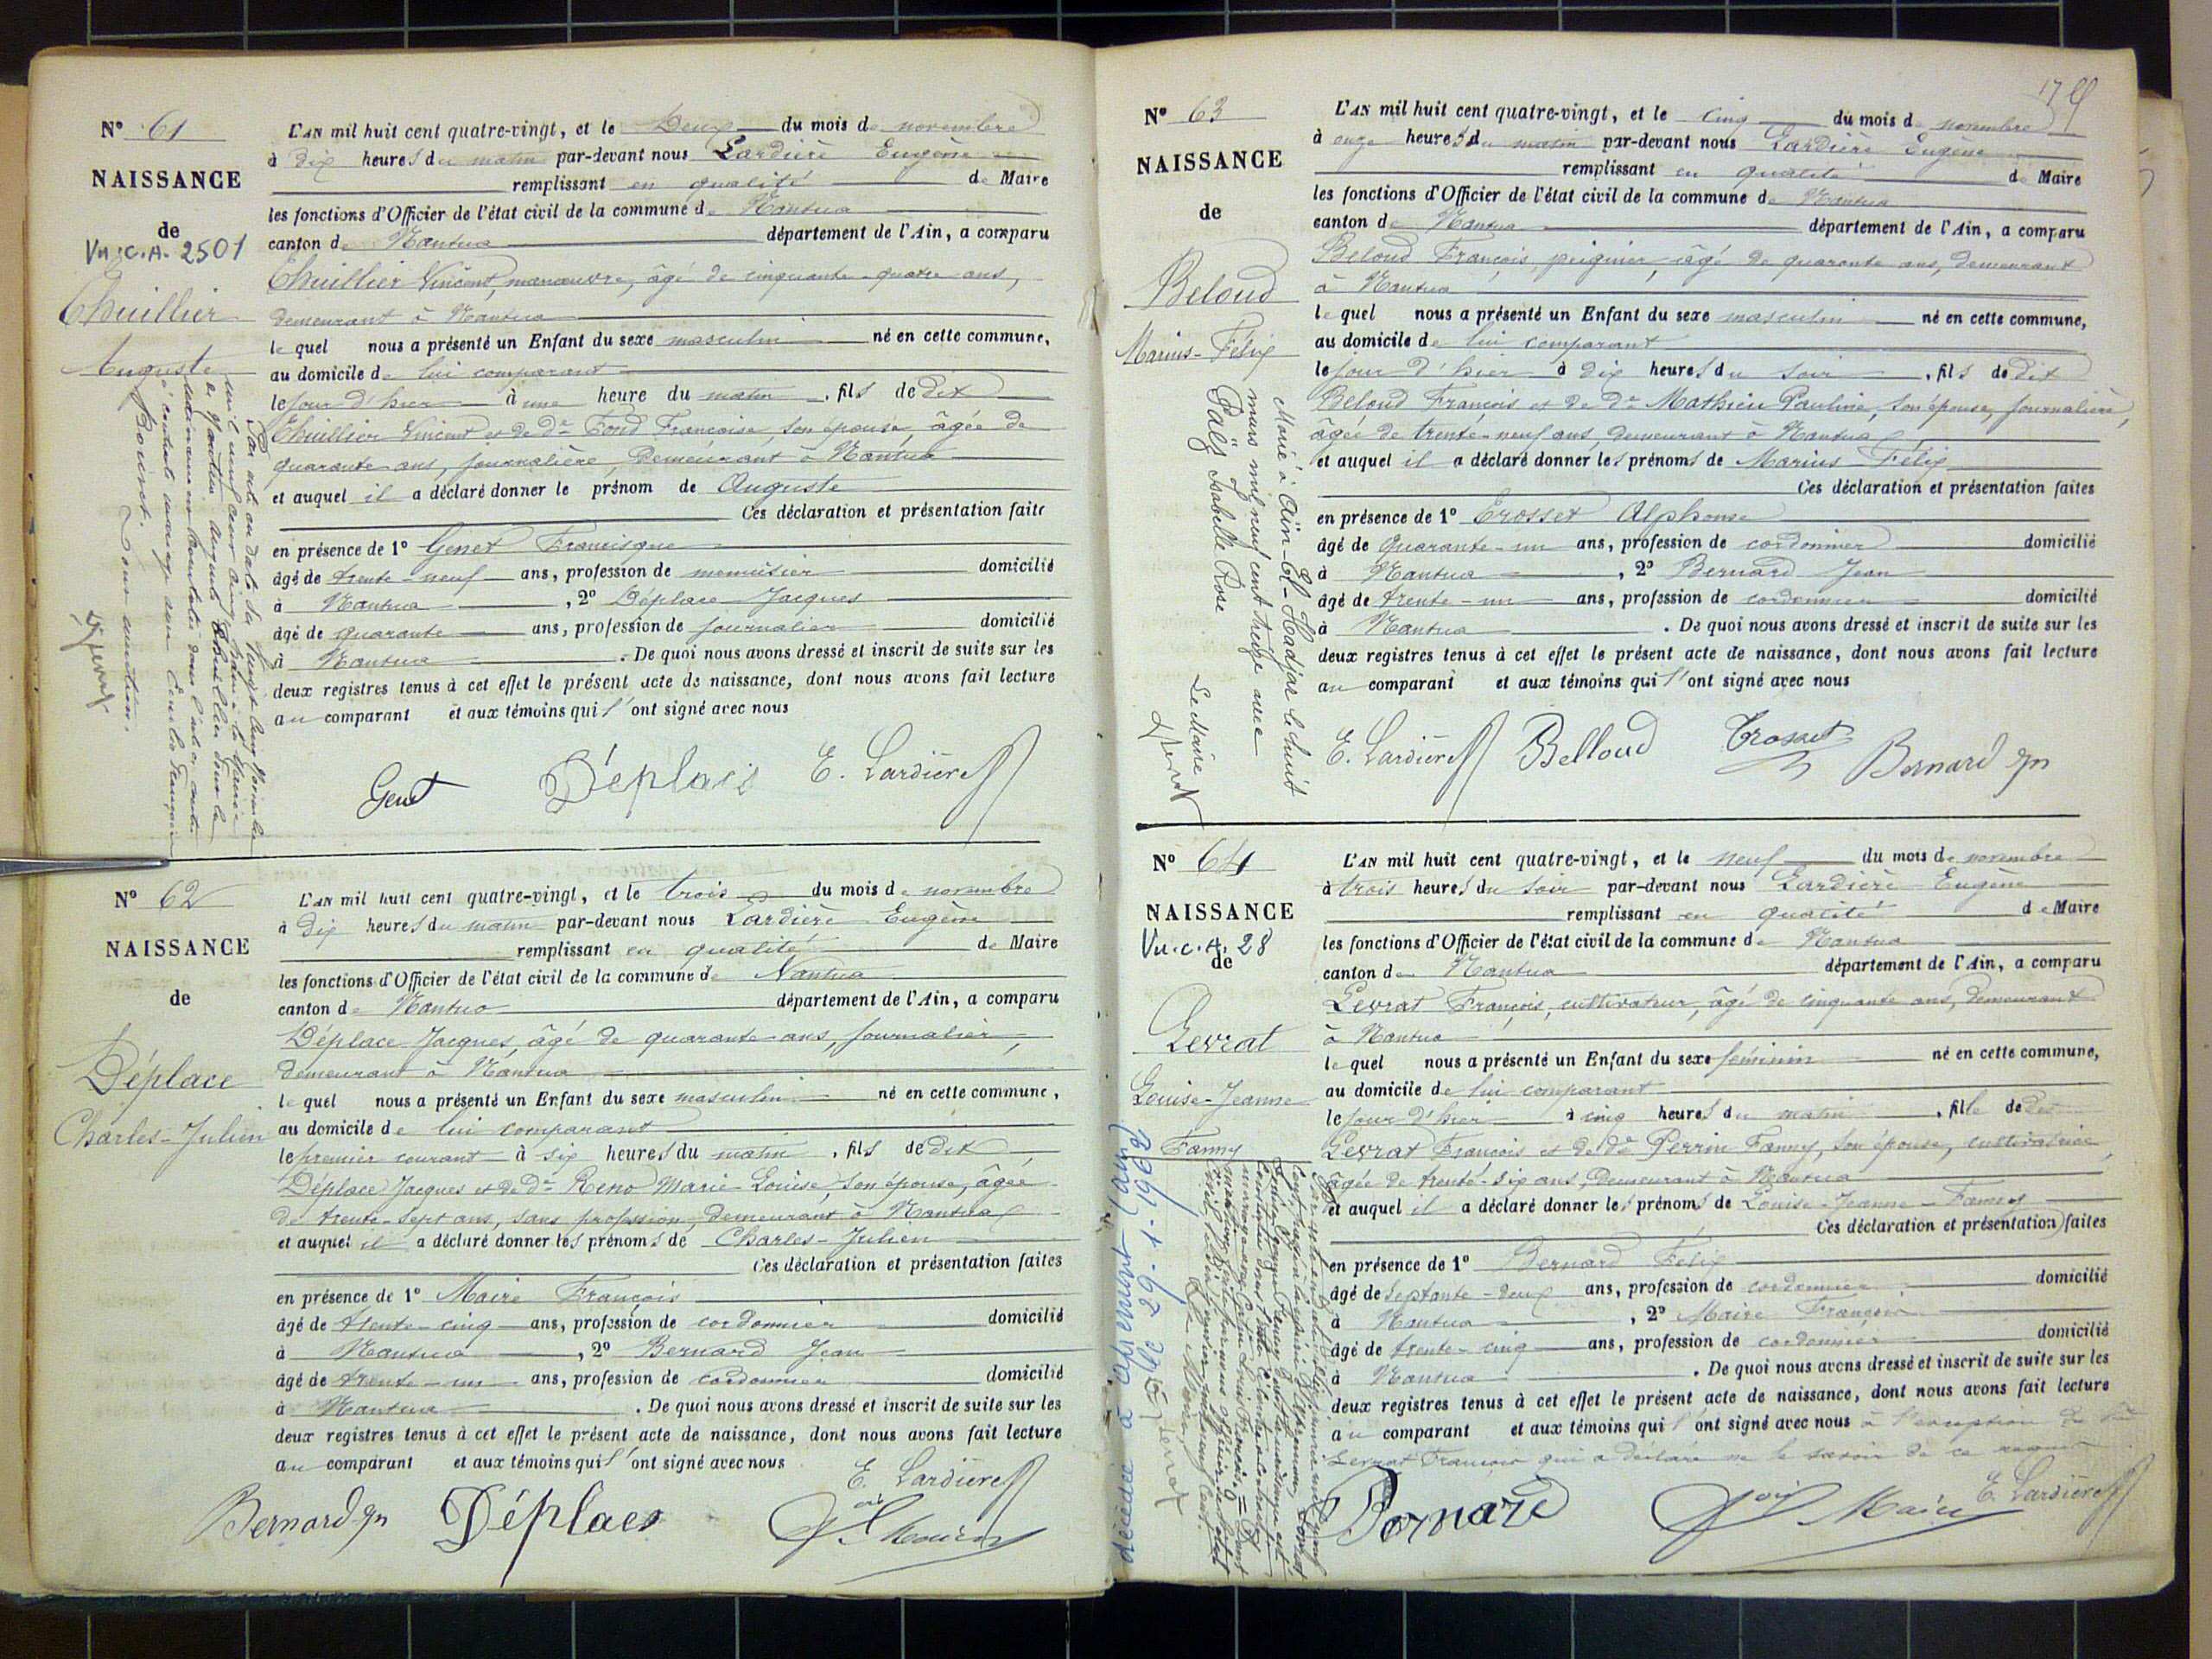 Nº 61
NAISSANCE
de
Vu. C. A. 2501
Thuillier
Auguste
L'AN mil huit cent quatre-vingt, et le Deux du mois de novembre
à dix heures du matin par-devant nous Lardière Eugène
remplissant en qualité de Maire
les fonctions d'Officier de l'état civil de la commune de Nantua
canton de Nantua département de l'Ain, a comparu
Thuillier Vincent, manœuvre, âgé de cinquante-quatre ans,
demeurant à Nantua
le quel nous a présenté un Enfant du sexe masculin né en cette commune,
au domicile de lui comparant
le jour d'hier à une heure du matin, fils de dit
Thuillier Vincent et de De Fond Françoise, son épouse, âgée de
quarante ans, journalière, demeurant à Nantua
et auquel il a déclaré donner le prénom de Auguste
Ces déclaration et présentation faite
en présence de 1º Genet Francisque
âgé de trente-neuf ans, profession de menuisier domicilié
à Nantua, 2º Déplace Jacques
âgé de quarante ans, profession de journalier domicilié
à Nantua. De quoi nous avons dressé et inscrit de suite sur les
deux registres tenus à cet effet le présent acte de naissance, dont nous avons fait lecture
au comparant et aux témoins qui l'ont signé avec nous
Genet Déplace E. Lardière
Nº 62
NAISSANCE
de
Déplace
Charles-Julien
L'AN mil huit cent quatre-vingt, et le trois du mois de novembre
à dix heures du matin par-devant nous Lardière Eugène
remplissant en qualité de Maire
les fonctions d'Officier de l'état civil de la commune de Nantua
canton de Nantua département de l'Ain, a comparu
Déplace Jacques, âgé de quarante ans, journalier,
demeurant à Nantua
le quel nous a présenté un Enfant du sexe masculin né en cette commune,
au domicile de lui comparant
le premier courant à six heures du matin, fils de dit
Déplace Jacques et de De Reno Marie-Louise, son épouse, âgée
de trente-sept ans, sans profession, demeurant à Nantua
et auquel il a déclaré donner les prénoms de Charles-Julien
Ces déclaration et présentation faites
en présence de 1º Maire François
âgé de trente-cinq ans, profession de cordonnier domicilié
à Nantua, 2º Bernard Jean
âgé de trente-un ans, profession de cordonnier domicilié
à Nantua. De quoi nous avons dressé et inscrit de suite sur les
deux registres tenus à cet effet le présent acte de naissance, dont nous avons fait lecture
au comparant et aux témoins qui l'ont signé avec nous
E. Lardière
Bernard Jn Déplace Maire
17
Nº 63
NAISSANCE
de
Beloud
Marius-Félix
Marié à Aïn-El-Hadjar le huit
mars mil neuf cent treize avec
Pälz Isabelle Rose
Le Maire
L'AN mil huit cent quatre-vingt, et le cinq du mois de novembre
à onze heures du matin par-devant nous Lardière Eugène
remplissant en qualité de Maire
les fonctions d'Officier de l'état civil de la commune de Nantua
canton de Nantua département de l'Ain, a comparu
Beloud François, peignier, âgé de quarante ans, demeurant
à Nantua
le quel nous a présenté un Enfant du sexe masculin né en cette commune,
au domicile de lui comparant
le jour d'hier à dix heures du soir, fils de dit
Beloud François et de De Mathieu Pauline, son épouse, journalière,
âgée de trente-neuf ans, demeurant à Nantua
et auquel il a déclaré donner les prénoms de Marius-Félix
Ces déclaration et présentation faites
en présence de 1º Crosset Alphonse
âgé de quarante-un ans, profession de cordonnier domicilié
à Nantua, 2º Bernard Jean
âgé de trente-un ans, profession de cordonnier domicilié
à Nantua. De quoi nous avons dressé et inscrit de suite sur les
deux registres tenus à cet effet le présent acte de naissance, dont nous avons fait lecture
au comparant et aux témoins qui l'ont signé avec nous
E. Lardière Belloud Crosset Bernard Jn
Nº 64
NAISSANCE
Vu. C. A. 28
de
Levrat
Louise-Jeanne
Fanny
décédée à Apremont (Ain)
le 29-1-1962
L'AN mil huit cent quatre-vingt, et le neuf du mois de novembre
à trois heures du soir par-devant nous Lardière Eugène
remplissant en qualité de Maire
les fonctions d'Officier de l'état civil de la commune de Nantua
canton de Nantua département de l'Ain, a comparu
Levrat François, cultivateur, âgé de cinquante ans, demeurant
à Nantua
le quel nous a présenté un Enfant du sexe féminin né en cette commune,
au domicile de lui comparant
le jour d'hier à cinq heures du matin, fille de dit
Levrat François et de De Perrin Fanny, son épouse, cultivatrice,
âgée de trente-six ans, demeurant à Nantua
et auquel il a déclaré donner les prénoms de Louise-Jeanne-Fanny
Ces déclaration et présentation faites
en présence de 1º Bernard Félix
âgé de septante-deux ans, profession de cordonnier domicilié
à Nantua, 2º Maire François
âgé de trente-cinq ans, profession de cordonnier domicilié
à Nantua. De quoi nous avons dressé et inscrit de suite sur les
deux registres tenus à cet effet le présent acte de naissance, dont nous avons fait lecture
au comparant et aux témoins qui l'ont signé avec nous à l'exception de
Levrat François qui a déclaré ne le savoir de ce requis
Bernard Maire E. Lardière